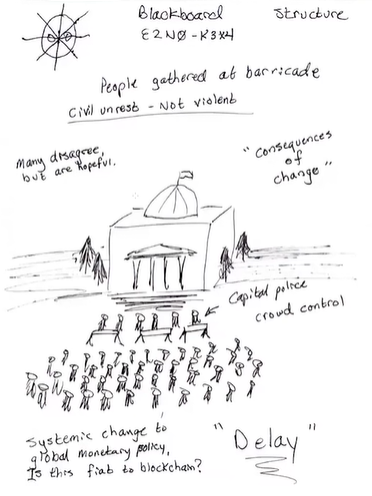 Blackboard Structure
E2NØ-K3X4
People gathered at barricade
Civil unrest - Not violent
Many disagree,
but are hopeful.
"Consequences
of
change"
Capital police
crowd control
Systemic change to
global monetary policy,
Is this fiat to blockchain?
"Delay"